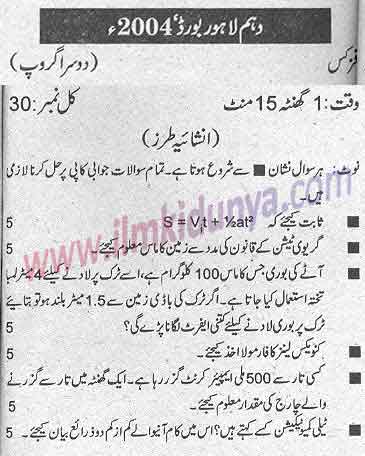 دہم لاہور بورڈ 2004ء
فزکس (دوسرا گروپ)
وقت: 1 گھنٹہ 15 منٹ کل نمبر: 30
(انشائیہ طرز)
نوٹ: ہر سوال نشان ■ سے شروع ہوتا ہے۔ تمام سوالات جوابی کاپی پر حل کرنا لازمی
ہیں۔
■ ثابت کیجئے کہ S = Vit + ½at² 5
■ گریوی ٹیشن کے قانون کی مدد سے زمین کا ماس معلوم کیجئے۔ 5
■ آٹے کی بوری جس کا ماس 100 کلوگرام ہے، اسے ٹرک پر لادنے کیلئے 4 میٹر لمبا
تختہ استعمال کیا جاتا ہے۔ اگر ٹرک کی باڈی زمین سے 1.5 میٹر بلند ہو تو بتائیے
ٹرک پر بوری لادنے کیلئے کتنی ایفرٹ لگانا پڑے گی؟ 5
■ کنویکس لینز کا فارمولا اخذ کیجئے۔ 5
■ کسی تار سے 500 ملی ایمپیئر کرنٹ گزر رہا ہے۔ ایک گھنٹہ میں تار سے گزرنے
والے چارج کی مقدار معلوم کیجئے۔ 5
■ ٹیلی کمیونیکیشن کسے کہتے ہیں؟ اس میں کام آنیوالے کم از کم دو ذرائع بیان کیجئے۔ 5
www.ilmkidunya.com